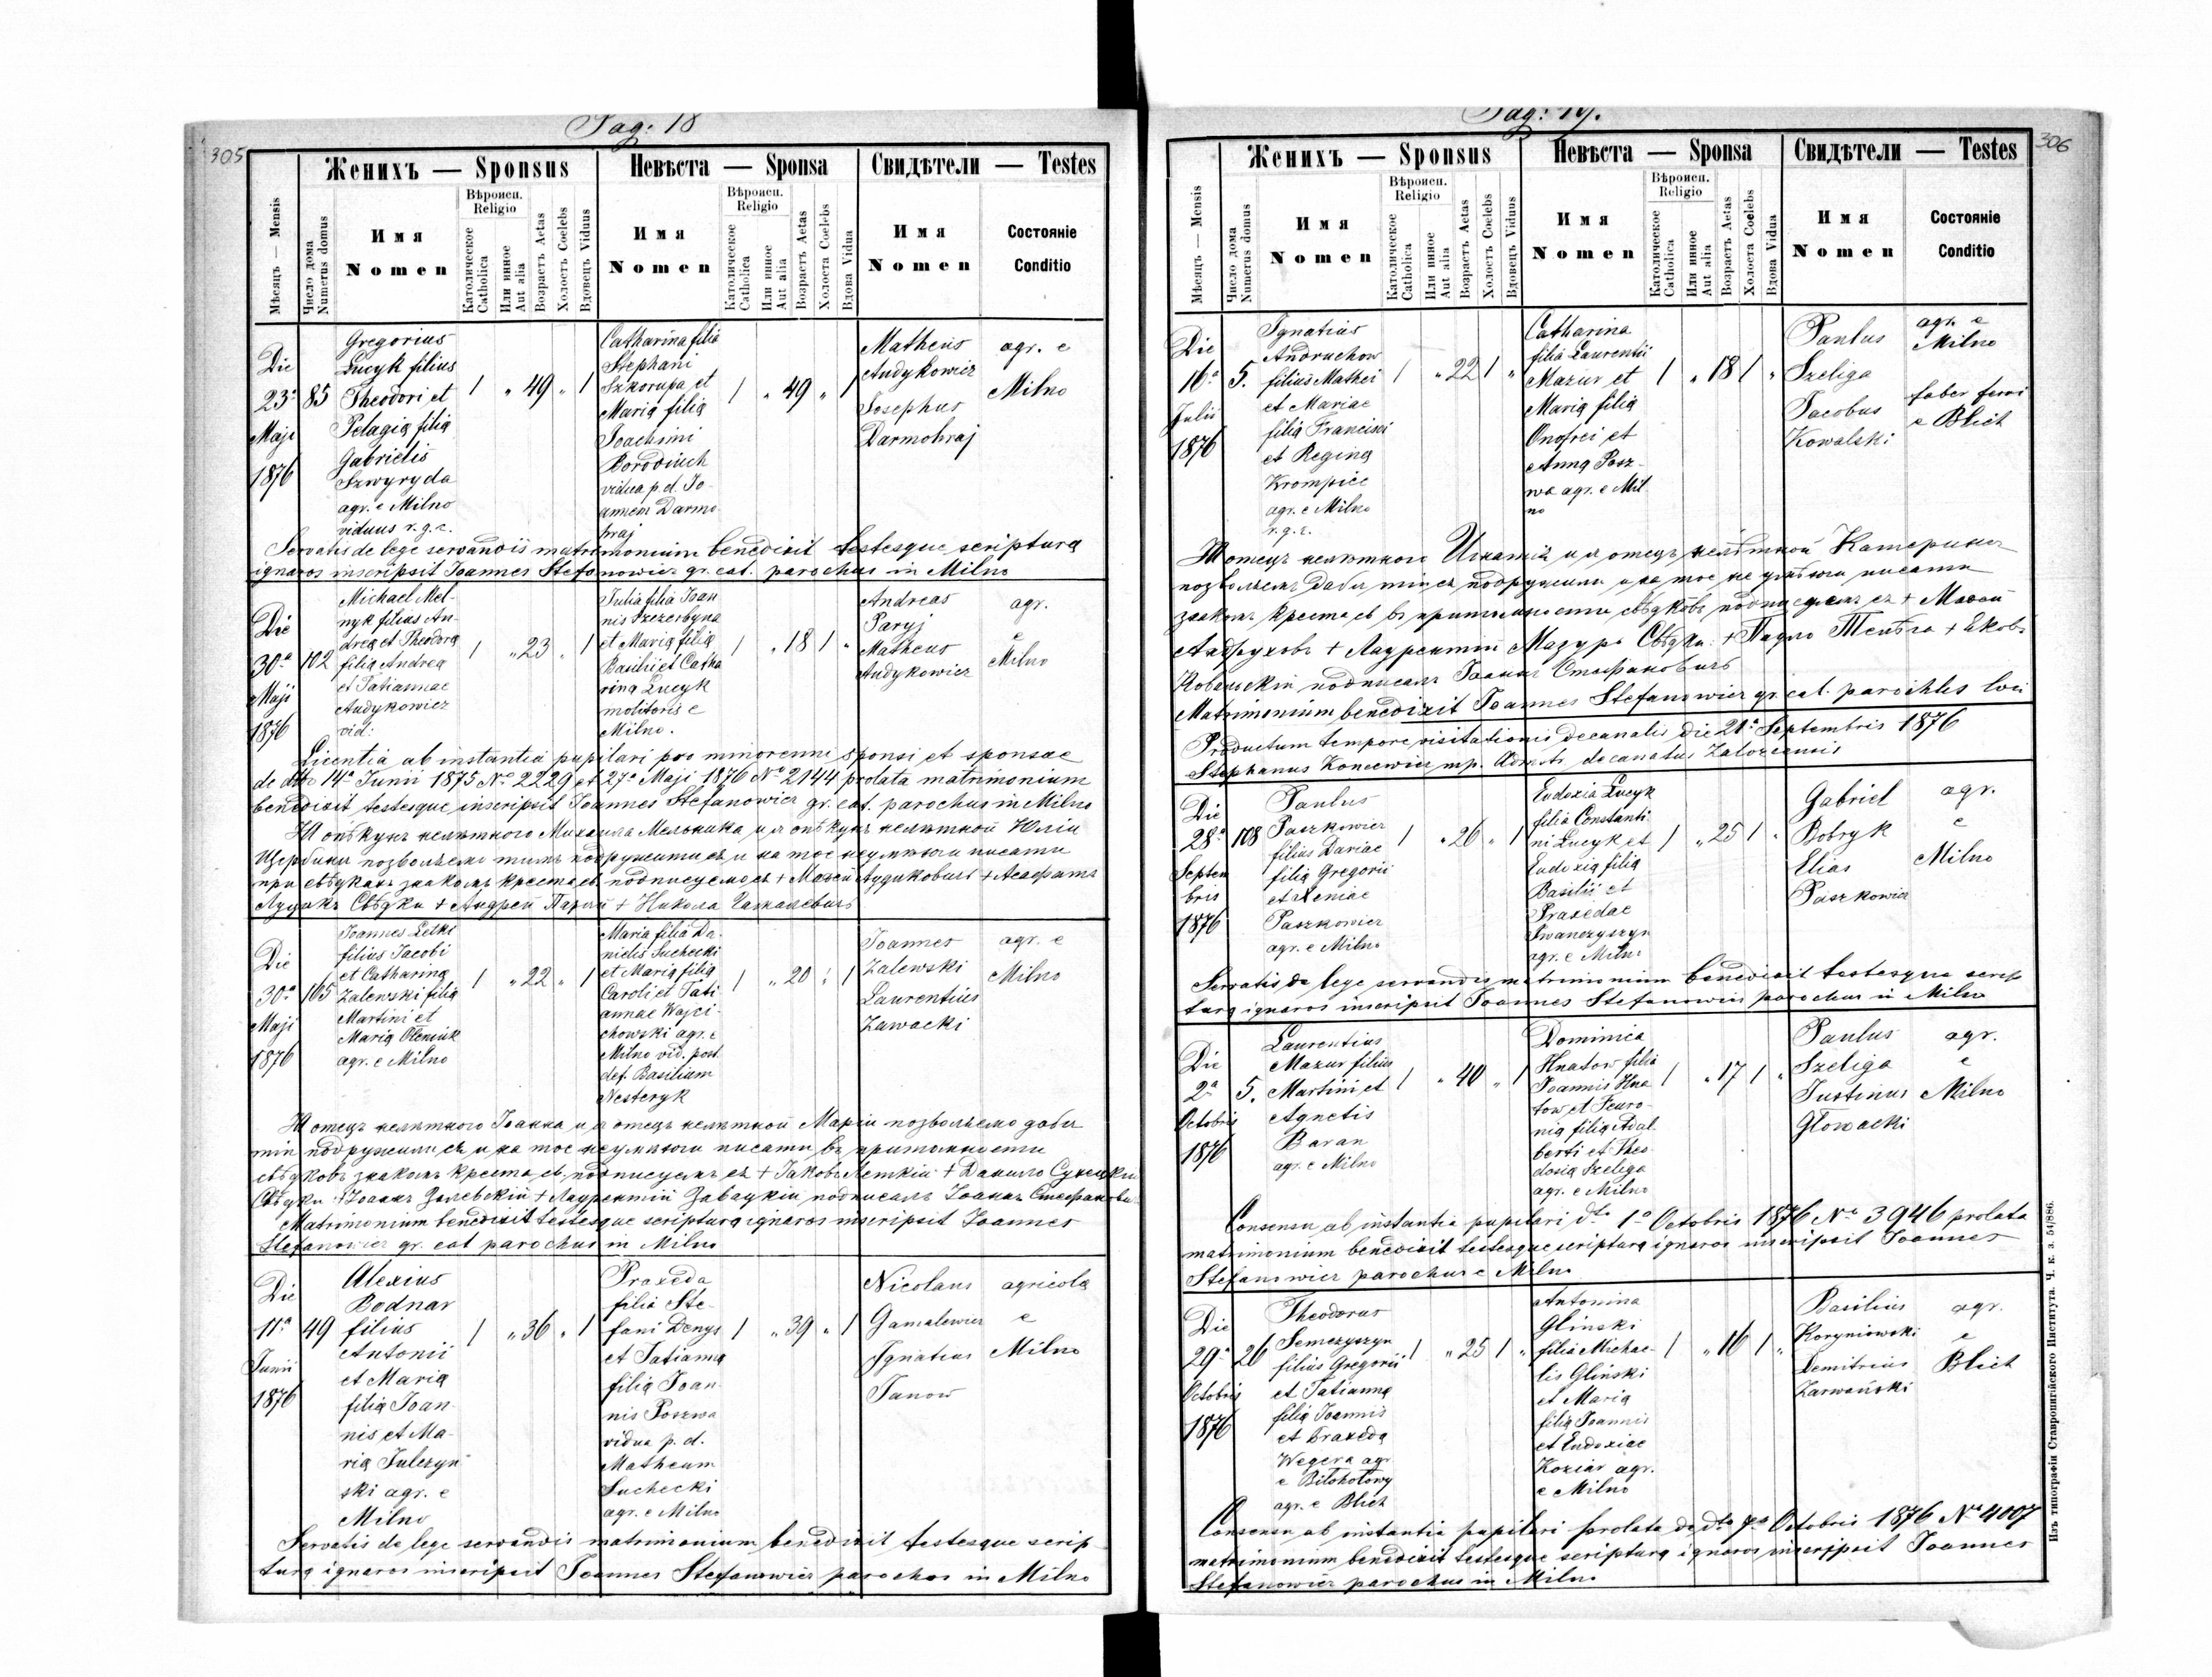 Pag: 18
305
Женихъ — Sponsus
Невѣста — Sponsa
Свидѣтели — Testes
Мѣсяцъ — Mensis
Число дома
Numerus domus
Имя
Nomen
Вѣроисп.
Religio
Католическое
Catholica
Или инное
Aut alia
Возрастъ Aetas
Холостъ Coelebs
Вдовецъ Viduus
Имя
Nomen
Вѣроисп.
Religio
Католическое
Catholica
Или инное
Aut alia
Возрастъ Aetas
Холоста Coelebs
Вдова Vidua
Имя
Nomen
Состояніе
Conditio
Die
23ª
Maji
1876
85
Gregorius
Lucyk filius
Theodori et
Pelagia filia
Gabrielis
Szwyryda
agr. e Milno
viduus r.g.c.
1 " 49 " 1
Catharina filia
Stephani
Szkorupa et
Maria filia
Joachimi
Borodiuch
vidua p.d. Jo-
annem Darmo
hraj
1 " 49 " 1
Matheus
Andykowicz
Josephus
Darmohraj
agr. e
Milno
Servatis de lege servandis matrimonium benedixit testesque scriptura
ignaros inscripsit Joannes Stefanowicz gr. cat. parochus in Milno
Die
30ª
Maji
1876
102
Michael Mel-
nyk filius An-
drea et Theodora
filia Andrea
et Tatiannae
Andykowicz
vid:
1 " 23 " 1
Julia filia Joan
nis Szczerbyna
et Maria filia
Basilii et Catha
rina Lucyk
molitoris e
Milno.
1 " 18 1 "
Andreas
Paryj
Matheus
Andykowicz
agr.
e
Milno
Licentia ab instantia pupilari pro minorenni sponsi et sponsae
de dtto 14ª Junii 1875 Nº 2229 et 27ª Maji 1876 Nº 2144 prolata matrimonium
benedixit testesque inscripsit Joannes Stefanowicz gr. cat. parochus in Milno
Я опѣкунъ нелѣтного Михаила Мельника и я опѣкунъ нелѣтной Юліи
Щербини позволяемо тимъ подружитись и на тое неумѣючи писати
при свѣдкахъ знакомъ креста св. подписуемось + Матей Андиковичъ +
Свѣдки + Андрей Парый + Никола
Die
30ª
Maji
1876
165
Joannes Letki
filius Jacobi
et Catharina
Zalewski filia
Martini et
Maria Oleniuk
agr. e Milno
1 " 22 " 1
Maria filia Da-
nielis Suchecki
et Maria filia
Caroli et Tati-
annae Wajci-
chowski agr. e
Milno vid. post
def. Basilium
Nesteryk
1 " 20 " 1
Joannes
Zalewski
Laurentius
Zawacki
agr. e
Milno
Я отецъ нелѣтного Іоанна и я отецъ нелѣтной Маріи позволяемо даби
тіи подружились и на тое неумѣючи писати въ притомности
свѣдковъ знакомъ креста св. подписуемъ ся + Яковъ Леткій + Данило Сухецкій
Свѣдки + Іоаннъ Залевскій + Лаурентій Завацкій подписалъ Іоаннъ Стефанови
Matrimonium benedixit testesque scriptura ignaros inscripsit Joannes
Stefanowicz gr. cat parochus in Milno
Die
11ª
Junii
1876
49
Alexius
Bodnar
filius
Antonii
et Maria
filia Joan-
nis et Ma-
ria Julczyn
ski agr. e
Milno
1 " 36 " 1
Praxeda
filia Ste-
fani Denys
et Tatianna
filia Joan-
nis Poszwa
vidua p. d.
Matheum
Suchecki
agr. e Milno
1 " 39 " 1
Nicolaus
Gamalewicz
Ignatius
Janow
agricola
e
Milno
Servatis de lege servandis matrimonium benedixit testesque scrip-
tura ignaros inscripsit Joannes Stefanowicz parochos in Milno
Pag: 19.
306
Женихъ — Sponsus
Невѣста — Sponsa
Свидѣтели — Testes
Мѣсяцъ — Mensis
Число дома
Numerus domus
Имя
Nomen
Вѣроисп.
Religio
Католическое
Catholica
Или инное
Aut alia
Возрастъ Aetas
Холостъ Coelebs
Вдовецъ Viduus
Имя
Nomen
Вѣроисп.
Religio
Католическое
Catholica
Или инное
Aut alia
Возрастъ Aetas
Холоста Coelebs
Вдова Vidua
Имя
Nomen
Состояніе
Conditio
Die
16ª
Julii
1876
5.
Ignatius
Andruchow
filius Mathei
et Mariae
filia Francisci
et Regina
Krompiec
agr. e Milno
r.g.c.
1 " 22 1 "
Catharina
filia Laurentii
Mazur et
Maria filia
Onofrei et
Anna Posz-
wa agr. e Mil-
no
1 " 18 1 "
Paulus
Szeliga
Jacobus
Kowalski
agr. e
Milno
faber ferri
e Blich
Я отецъ нелѣтного Игнатія и я отецъ нелѣтной Катерини
позволяемъ даби тіи ся подружили и на тое не умѣючи писати
знакомъ креста св въ притомности свѣдковъ подписуемъ ся + Матей
Андруховъ + Лаурентій Мазуръ Свѣдки: + Павло Шелѣга + Яковъ
Ковальскій подписалъ Іоаннъ Стефановичъ
Matrimonium benedixit Joannes Stefanowicz gr. cat. parochus loci
Productum tempore visitationis decanalis die 21ª Septembris 1876
Stephanus Koncewicz mp. decanatus Zalozcensis
Die
28ª
Septem
bris
1876
108
Paulus
Paszkowicz
filius Dariae
filia Gregorii
et Xeniae
Paszkowicz
agr. e Milno
1 " 26 " 1
Eudoxia Lucyk
filia Constanti-
ni Lucyk et
Eudoxia filia
Basilii et
Praxedae
Iwanczyszyn
agr. e Milno
1 " 25 1 "
Gabriel
Bobryk
Elias
Paszkowicz
agr.
e
Milno
Servatis de lege servandis matrimonium benedixit testesque scrip-
tura ignaros inscripsit Joannes Stefanowicz parochus in Milno
Die
2ª
Octobris
1876
5.
Laurentius
Mazur filius
Martini et
Agnetis
Baran
agr. e Milno
1 " 40 " 1
Dominica
Hnatow filia
Joannis Hna
tow et Feuro-
nia filia Adal-
berti et Theo-
dosia Szeliga
agr. e Milno
1 " 17 1 "
Paulus
Szeliga
Justinus
Głowacki
agr.
e
Milno
Consensu ab instantia pupilari dto 1º Octobris 1876 Nº 3946 prolata
matrimonium benedixit testesque scriptura ignaros inscripsit Joannes
Stefanowicz parochus e Milno
Die
29ª
Octobris
1876
26
Theodorus
Semczyszyn
filius Gregorii
et Tatianna
filia Joannis
et Praxeda
Wegera agr
e Bilohołowy
agr. e Blich
1 " 25 1 "
Antonina
Glinski
filia Michae-
lis Glinski
et Maria
filia Joannis
et Eudoxiae
Koziar agr.
e Milno
1 " 16 1 "
Basilius
Koryniowski
Demitrius
Zarwański
agr.
e
Blich
Consensu ab instantia pupilari prolata de dto 7º Octobris 1876 Nº 4007
matrimonium benedixit testesque scriptura ignaros inscripsit Joannes
Stefanowicz parochus in Milno
Изъ типографіи Ставропигійского Института. Ч. к. з. 54/886.